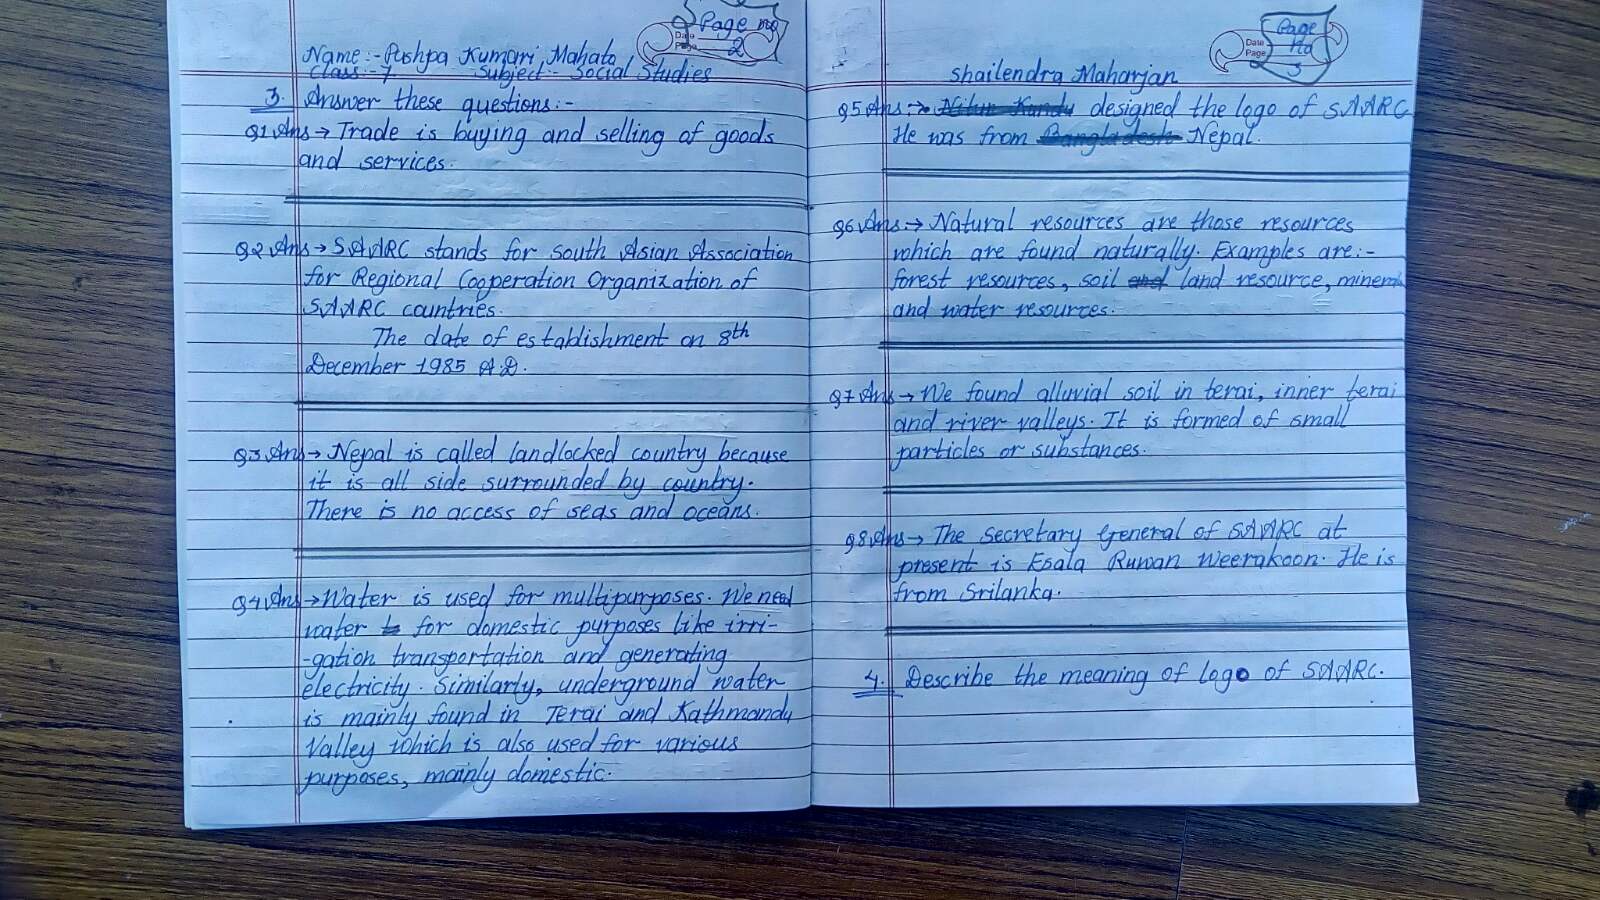 Page no
Date
Page 2
Name:- Pushpa Kumari Mahato
Class:- 7 Subject:- Social Studies
3. Answer these questions:-
Q1 Ans → Trade is buying and selling of goods
and services.
Q2 Ans → SAARC stands for South Asian Association
for Regional Cooperation Organization of
SAARC countries.
The date of establishment on 8th
December 1985 A.D.
Q3 Ans → Nepal is called landlocked country because
it is all side surrounded by country.
There is no access of seas and oceans.
Q4 Ans → Water is used for multipurposes. We need
water for domestic purposes like irri-
-gation transportation and generating
electricity. Similarly, underground water
is mainly found in Terai and Kathmandu
Valley which is also used for various
purposes, mainly domestic.
Page
Date no
Page 3
Shailendra Maharjan
Q5 Ans:→ Nitun Kundu designed the logo of SAARC
He was from Bangladesh Nepal.
Q6 Ans:→ Natural resources are those resources
which are found naturally. Examples are:-
forest resources, soil and land resource, minerals
and water resources.
Q7 Ans → We found alluvial soil in terai, inner terai
and river valleys. It is formed of small
particles or substances.
Q8 Ans → The Secretary General of SAARC at
present is Esala Ruwan Weerakoon. He is
from Srilanka.
4. Describe the meaning of logo of SAARC.